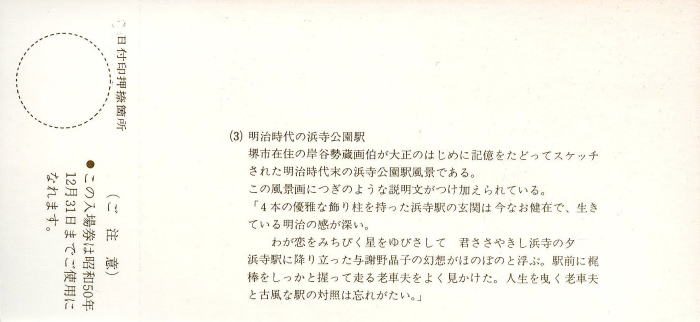 日付印押捺箇所
(ご 注 意)
●この入場券は昭和50年
12月31日までご使用に
なれます。
(3) 明治時代の浜寺公園駅
堺市在住の岸谷勢蔵画伯が大正のはじめに記憶をたどってスケッチ
された明治時代末の浜寺公園駅風景である。
この風景画につぎのような説明文がつけ加えられている。
「4本の優雅な飾り柱を持った浜寺駅の玄関は今なお健在で、生き
ている明治の感が深い。
わが恋をみちびく星をゆびさして 君ささやきし浜寺の夕
浜寺駅に降り立った与謝野晶子の幻想がほのぼのと浮ぶ。駅前に梶
棒をしっかと握って走る老車夫をよく見かけた。人生を曳く老車夫
と古風な駅の対照は忘れがたい。」